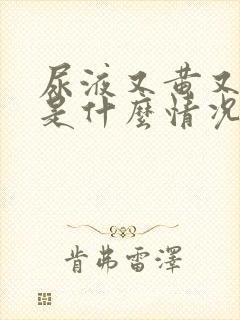 尿液又黄又
是什麼情况
肯弗雷澤